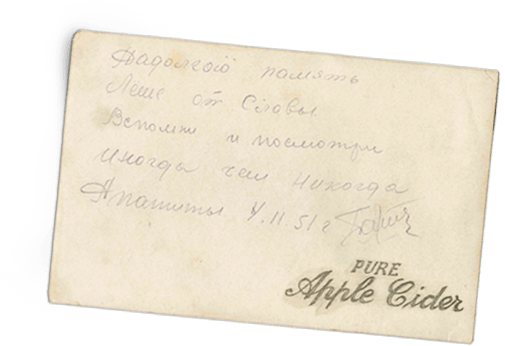 Надолгою память
Леше от Славы
Вспомни и посмотри
иногда чем никогда
Апатиты 4.II 51 г
PURE
Apple Cider